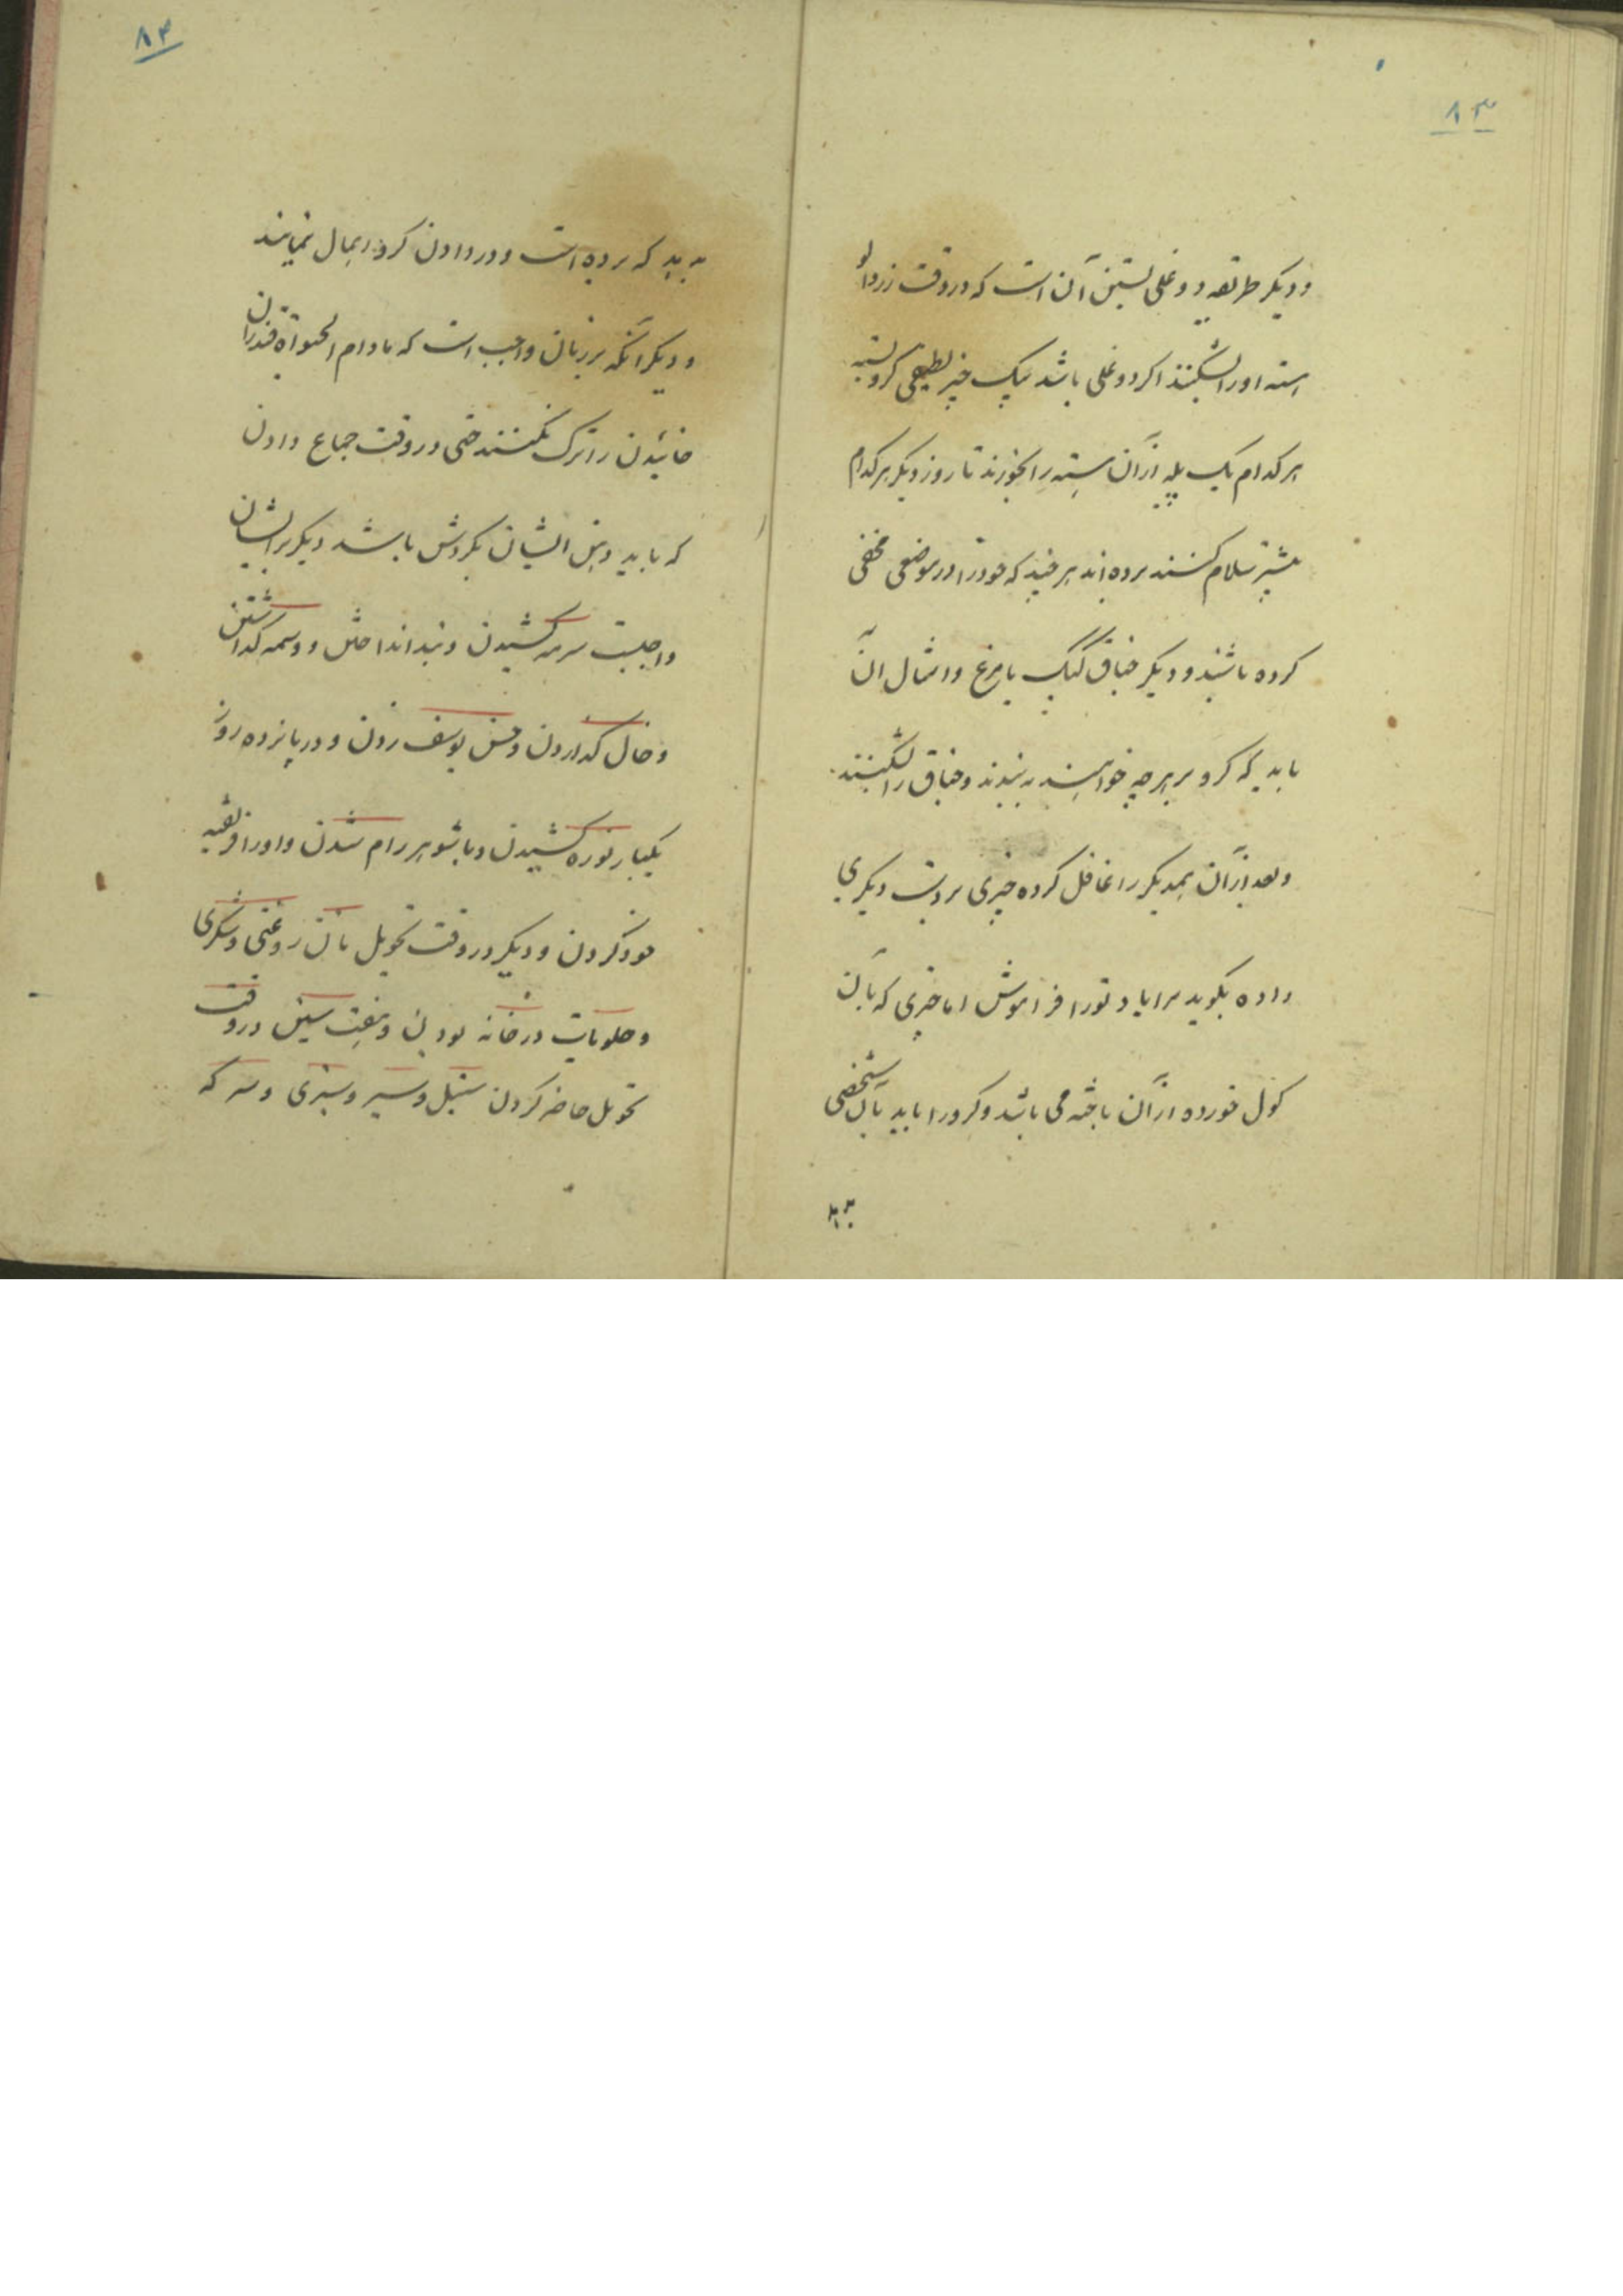 ۸۳
و دیگر طریقه دوغلی بستن آن است که در وقت زردالو
استه او را بشکنند اگر دوغلی باشد بیک چیز لطیفی گرو بسته
هر کدام یک پله از آن بسته را بخورند تا روز دیگر هر کدام
بیشتر سلام کنند برده اند هر چند که خود را در موضعی مخفی
کرده باشند و دیگر جناق کبک یا مرغ و امثال آن
باید که گرو بر هر چه خواهند به بندند و جناق را بشکنند
و بعد از آن همدیگر را غافل کرده چیزی بر دست دیگری
داده بگوید مرا یاد تو را فراموش اما چیزی که بآن
گول خورده از آن باخته می باشد و گرو را باید بآن شخصی
۸۴
بدهد که برده است و در دادن گرو اهمال ننمایند
و دیگر آنکه بر زنان واجب است که مادام الحیوة قندران
خائیدن را ترک نکنند حتی در وقت جماع دادن
که باید دهن ایشان بگردش باشد دیگر بر ایشان
واجبست سرمه کشیدن و بند انداختن و وسمه گذاشتن
و خال گذاردن و حسن یوسف زدن و در پانزده روز
یکبار نوره کشیدن و با شوهر رام شدن و او را فریفته
خود کردن و دیگر در وقت تحویل نان روغنی و شکری
و حلویات در خانه بودن و هفت سین در وقت
تحویل حاضر کردن سنبل و سیر و سبزی و سرکه